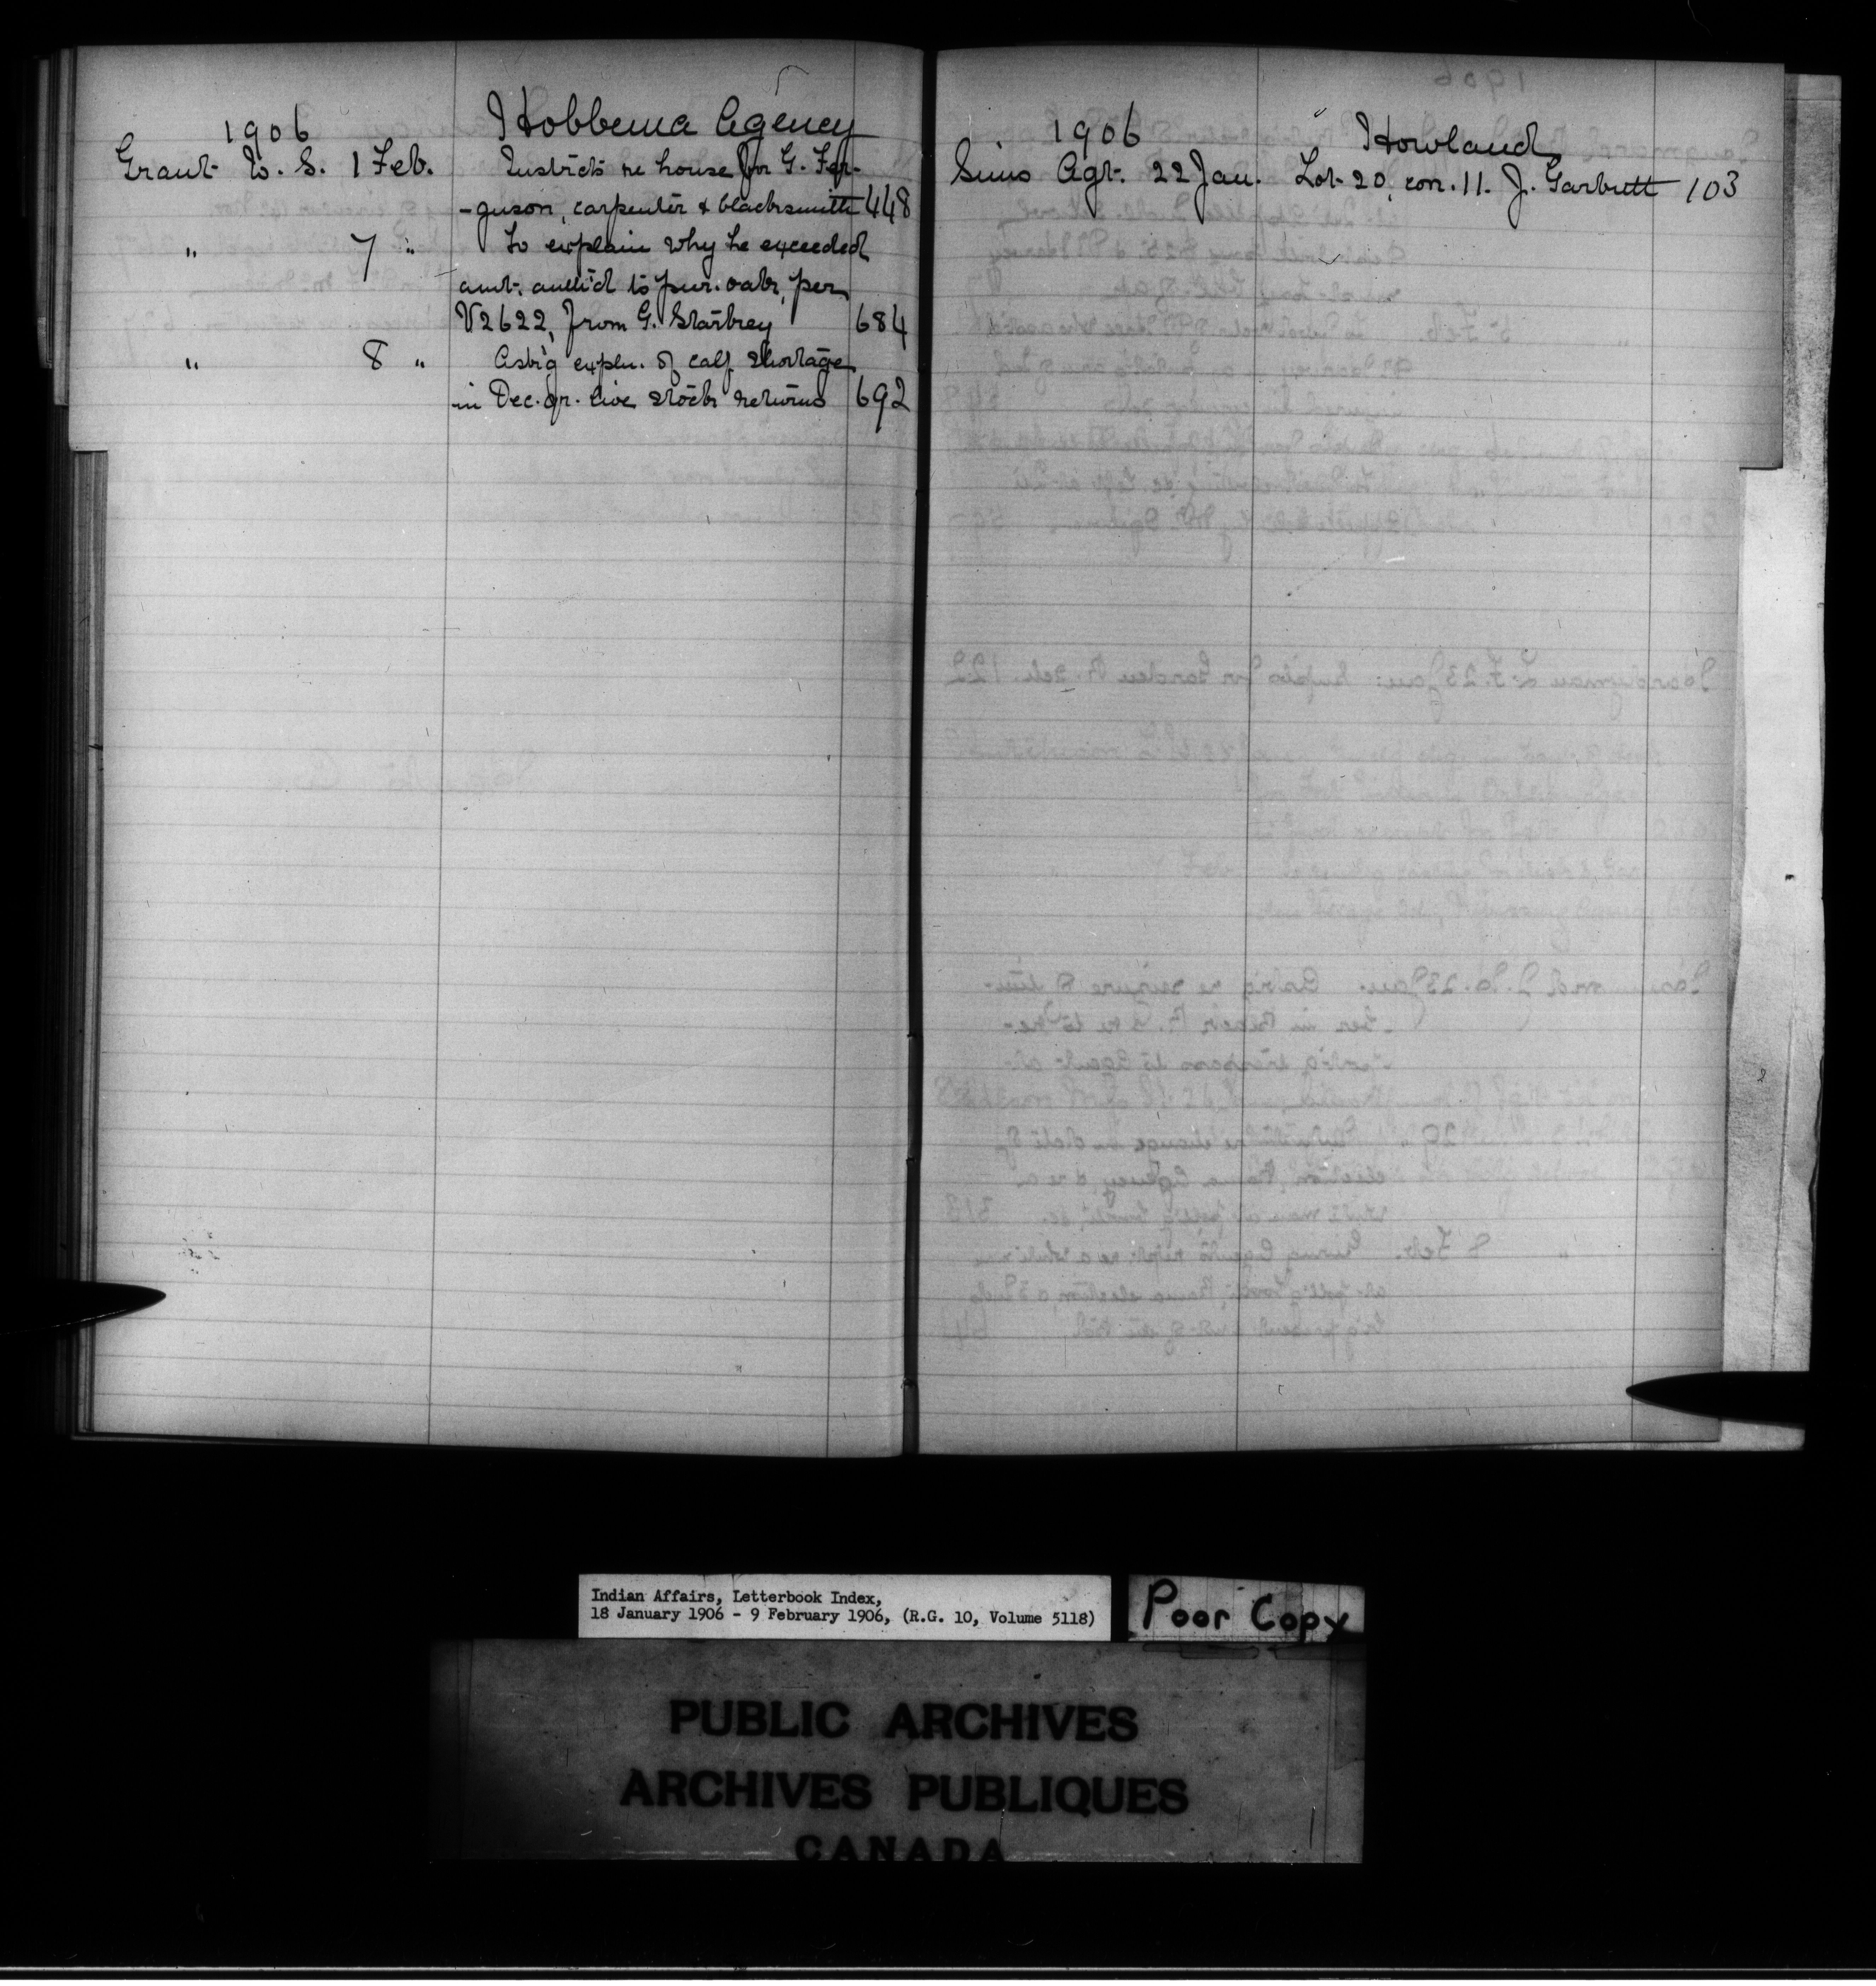 1906 Hobbema Agency
Grant W. S. 1 Feb. Instrcts re house for G. Fer-
-guson, carpenter & blacksmith 448
" 7 " To explain why he exceeded
amt. auth'd to pur. oats, per
V2622, from G. Starbrey 684
" 8 " Ask'g expln. of calf shortage
in Dec. qr. live stock returns 692
1906 Howland
Sims Agt. 22 Jan. Lot 20, con. 11. J. Garbutt 103
Indian Affairs, Letterbook Index,
18 January 1906 - 9 February 1906, (R.G. 10, Volume 5118)
Poor Copy
PUBLIC ARCHIVES
ARCHIVES PUBLIQUES
CANADA